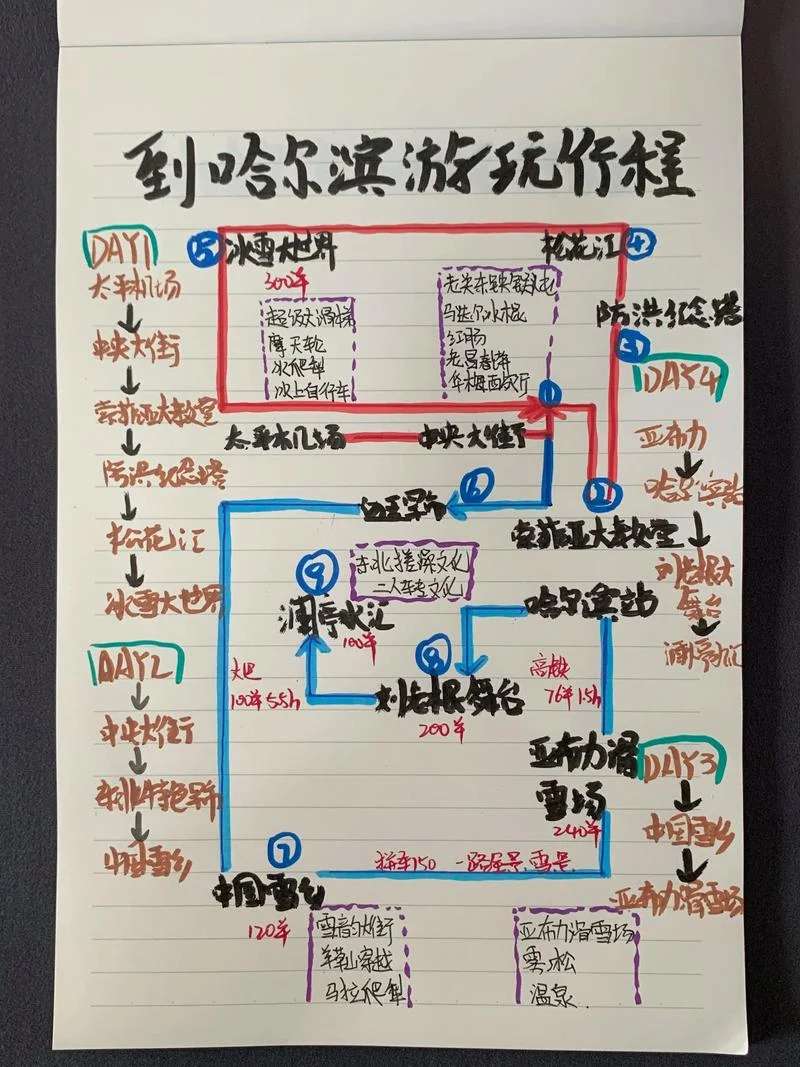 到哈尔滨游玩行程
DAY1
太平机场
中央大街
索菲亚大教堂
防洪纪念塔
松花江
冰雪大世界
DAY2
中央大街
东北特色早市
中国雪乡
⑤ 冰雪大世界
300羊
超级大滑梯
摩天轮
冰爬犁
冰上自行车
松花江 ④
马迭尔冰棍
红场
老昌春饼
华梅西餐厅
防洪纪念塔
③
①
太平机场
中央大街
②
索菲亚大教堂
⑥
早市
东北搓澡文化
二人转文化
⑨
澜亭水汇
100羊
哈尔滨站
⑧
刘老根舞台
200羊
大巴
100羊5.5h
高铁
76羊1.5h
亚布力滑
雪场
240羊
⑦
拼车150 一路尾景,雪景
中国雪乡
120羊
雪韵大街
羊草山穿越
马拉爬犁
亚布力滑雪场
雾松
温泉
DAY4
亚布力
哈尔滨站
刘老根大
舞台
澜亭水汇
DAY3
中国雪乡
亚布力滑雪场